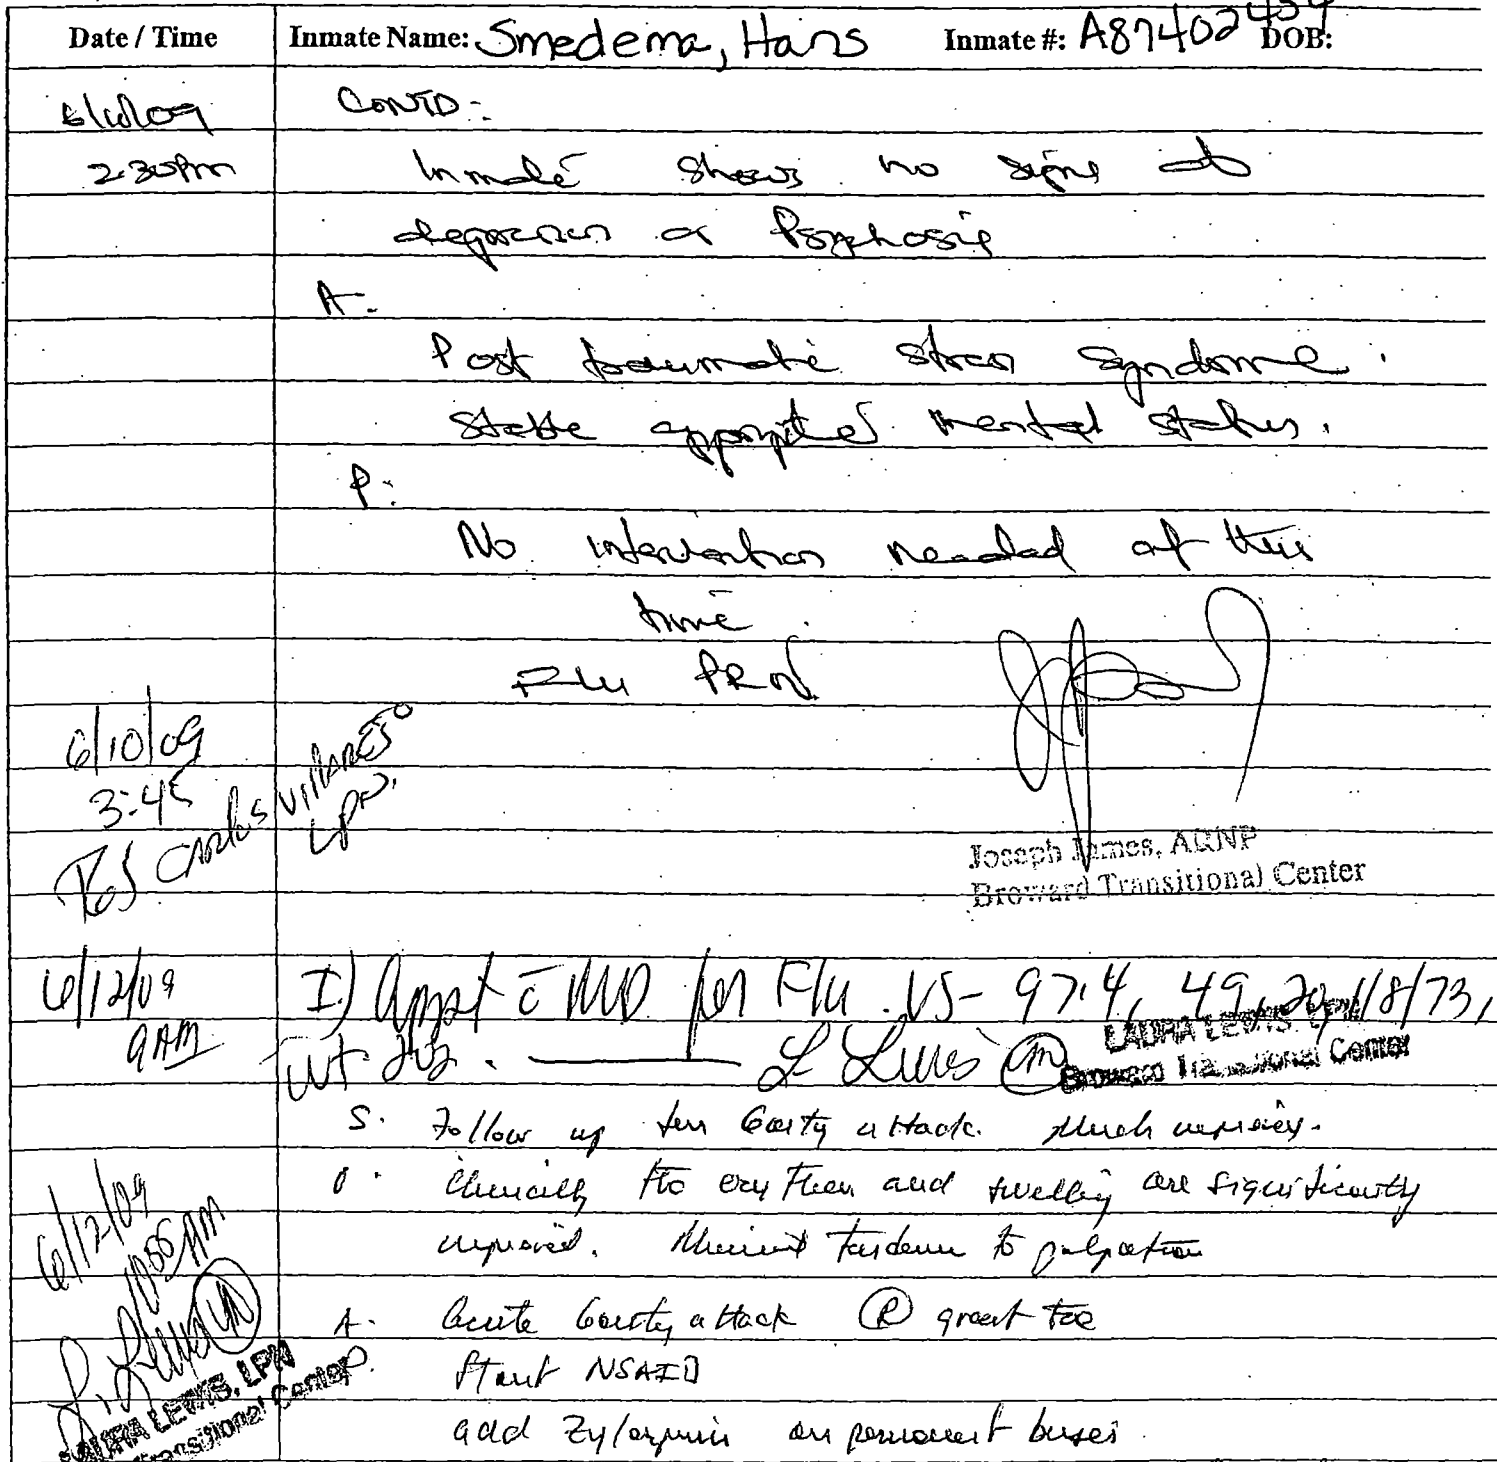 Date / Time Inmate Name: Smedema, Hans Inmate #: A87402454 DOB:
6/10/09 CONTD:
2:30pm Inmate shows no signs of
depression or Psychosis
A.
Post traumatic stress syndrome.
Stable appropriate mental status.
P:
No intervention needed at this
time.
F/U PRN
6/10/09
3:45
Carlos Villares
LPN
Joseph James, ARNP
Broward Transitional Center
6/12/09 I) Appt c̄ MD for F/u. VS- 97.4, 49, 20, 118/73,
9AM Wt L Lewis LPN
LAURA LEWIS, LPN
Broward Transitional Center
S. Follow up for Gouty attack. Much
O. Clinically the erythem and swelling are significantly
improved. to palpation
A. Acute Gouty attack Ⓡ great toe
P. Start NSAID
add Zyloprim on permanent bases.
6/12/09
L. Lewis LPN
LAURA LEWIS, LPN
Transitional Center